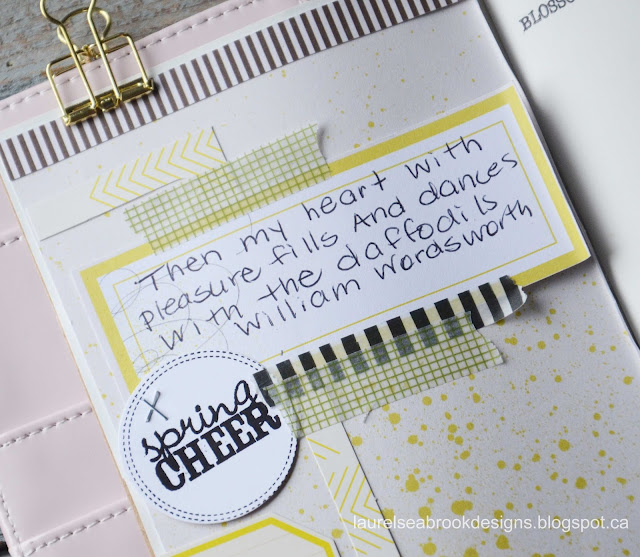 BLOSSO
Then my heart with
pleasure fills And dances
with the daffodils
William Wordsworth
spring
CHEER
laurelseabrookdesigns.blogspot.ca